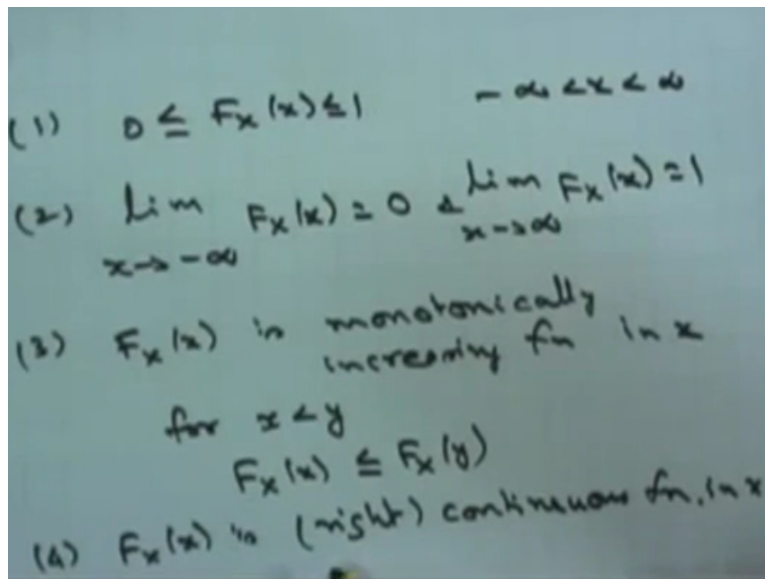 (1) 0 ≤ Fx(x) ≤ 1 -∞ < x < ∞
(2) lim Fx(x) = 0 & lim Fx(x) = 1
x→-∞ x→∞
(3) Fx(x) is monotonically
increasing fn in x
for x < y
Fx(x) ≤ Fx(y)
(4) Fx(x) is (right) continuous fn. in x